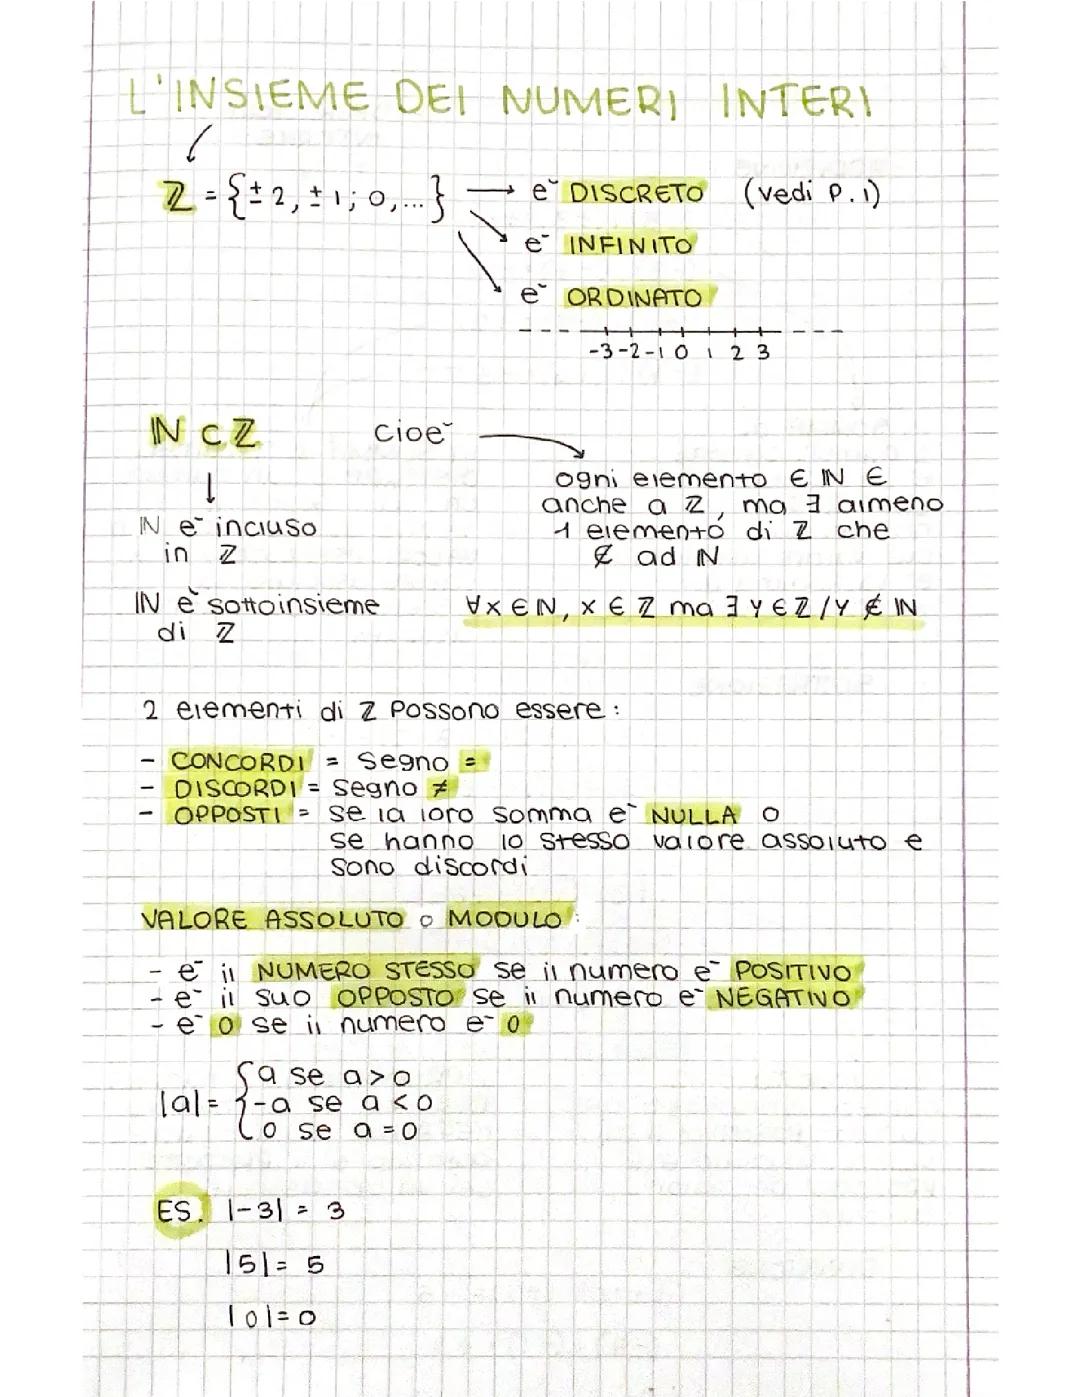 L'INSIEME DEI NUMERI INTERI
ℤ = {± 2, ± 1; 0, ...} → è DISCRETO (vedi P. 1)
è INFINITO
è ORDINATO
-3 -2 -1 0 1 2 3
ℕ ⊂ ℤ cioè
ogni elemento ∈ ℕ ∈
anche a ℤ, ma ∃ almeno
1 elemento di ℤ che
∉ ad ℕ
ℕ è incluso
in ℤ
ℕ è sottoinsieme
di ℤ
∀x ∈ ℕ, x ∈ ℤ ma ∃ y ∈ ℤ / y ∉ ℕ
2 elementi di ℤ possono essere:
- CONCORDI = segno =
- DISCORDI = segno ≠
- OPPOSTI = se la loro somma è NULLA o
se hanno lo stesso valore assoluto e
sono discordi
VALORE ASSOLUTO o MODULO:
- è il NUMERO STESSO se il numero è POSITIVO
- è il suo OPPOSTO se il numero è NEGATIVO
- è 0 se il numero è 0
|a| = { a se a > 0
-a se a < 0
0 se a = 0
ES. |-3| = 3
|5| = 5
|0| = 0